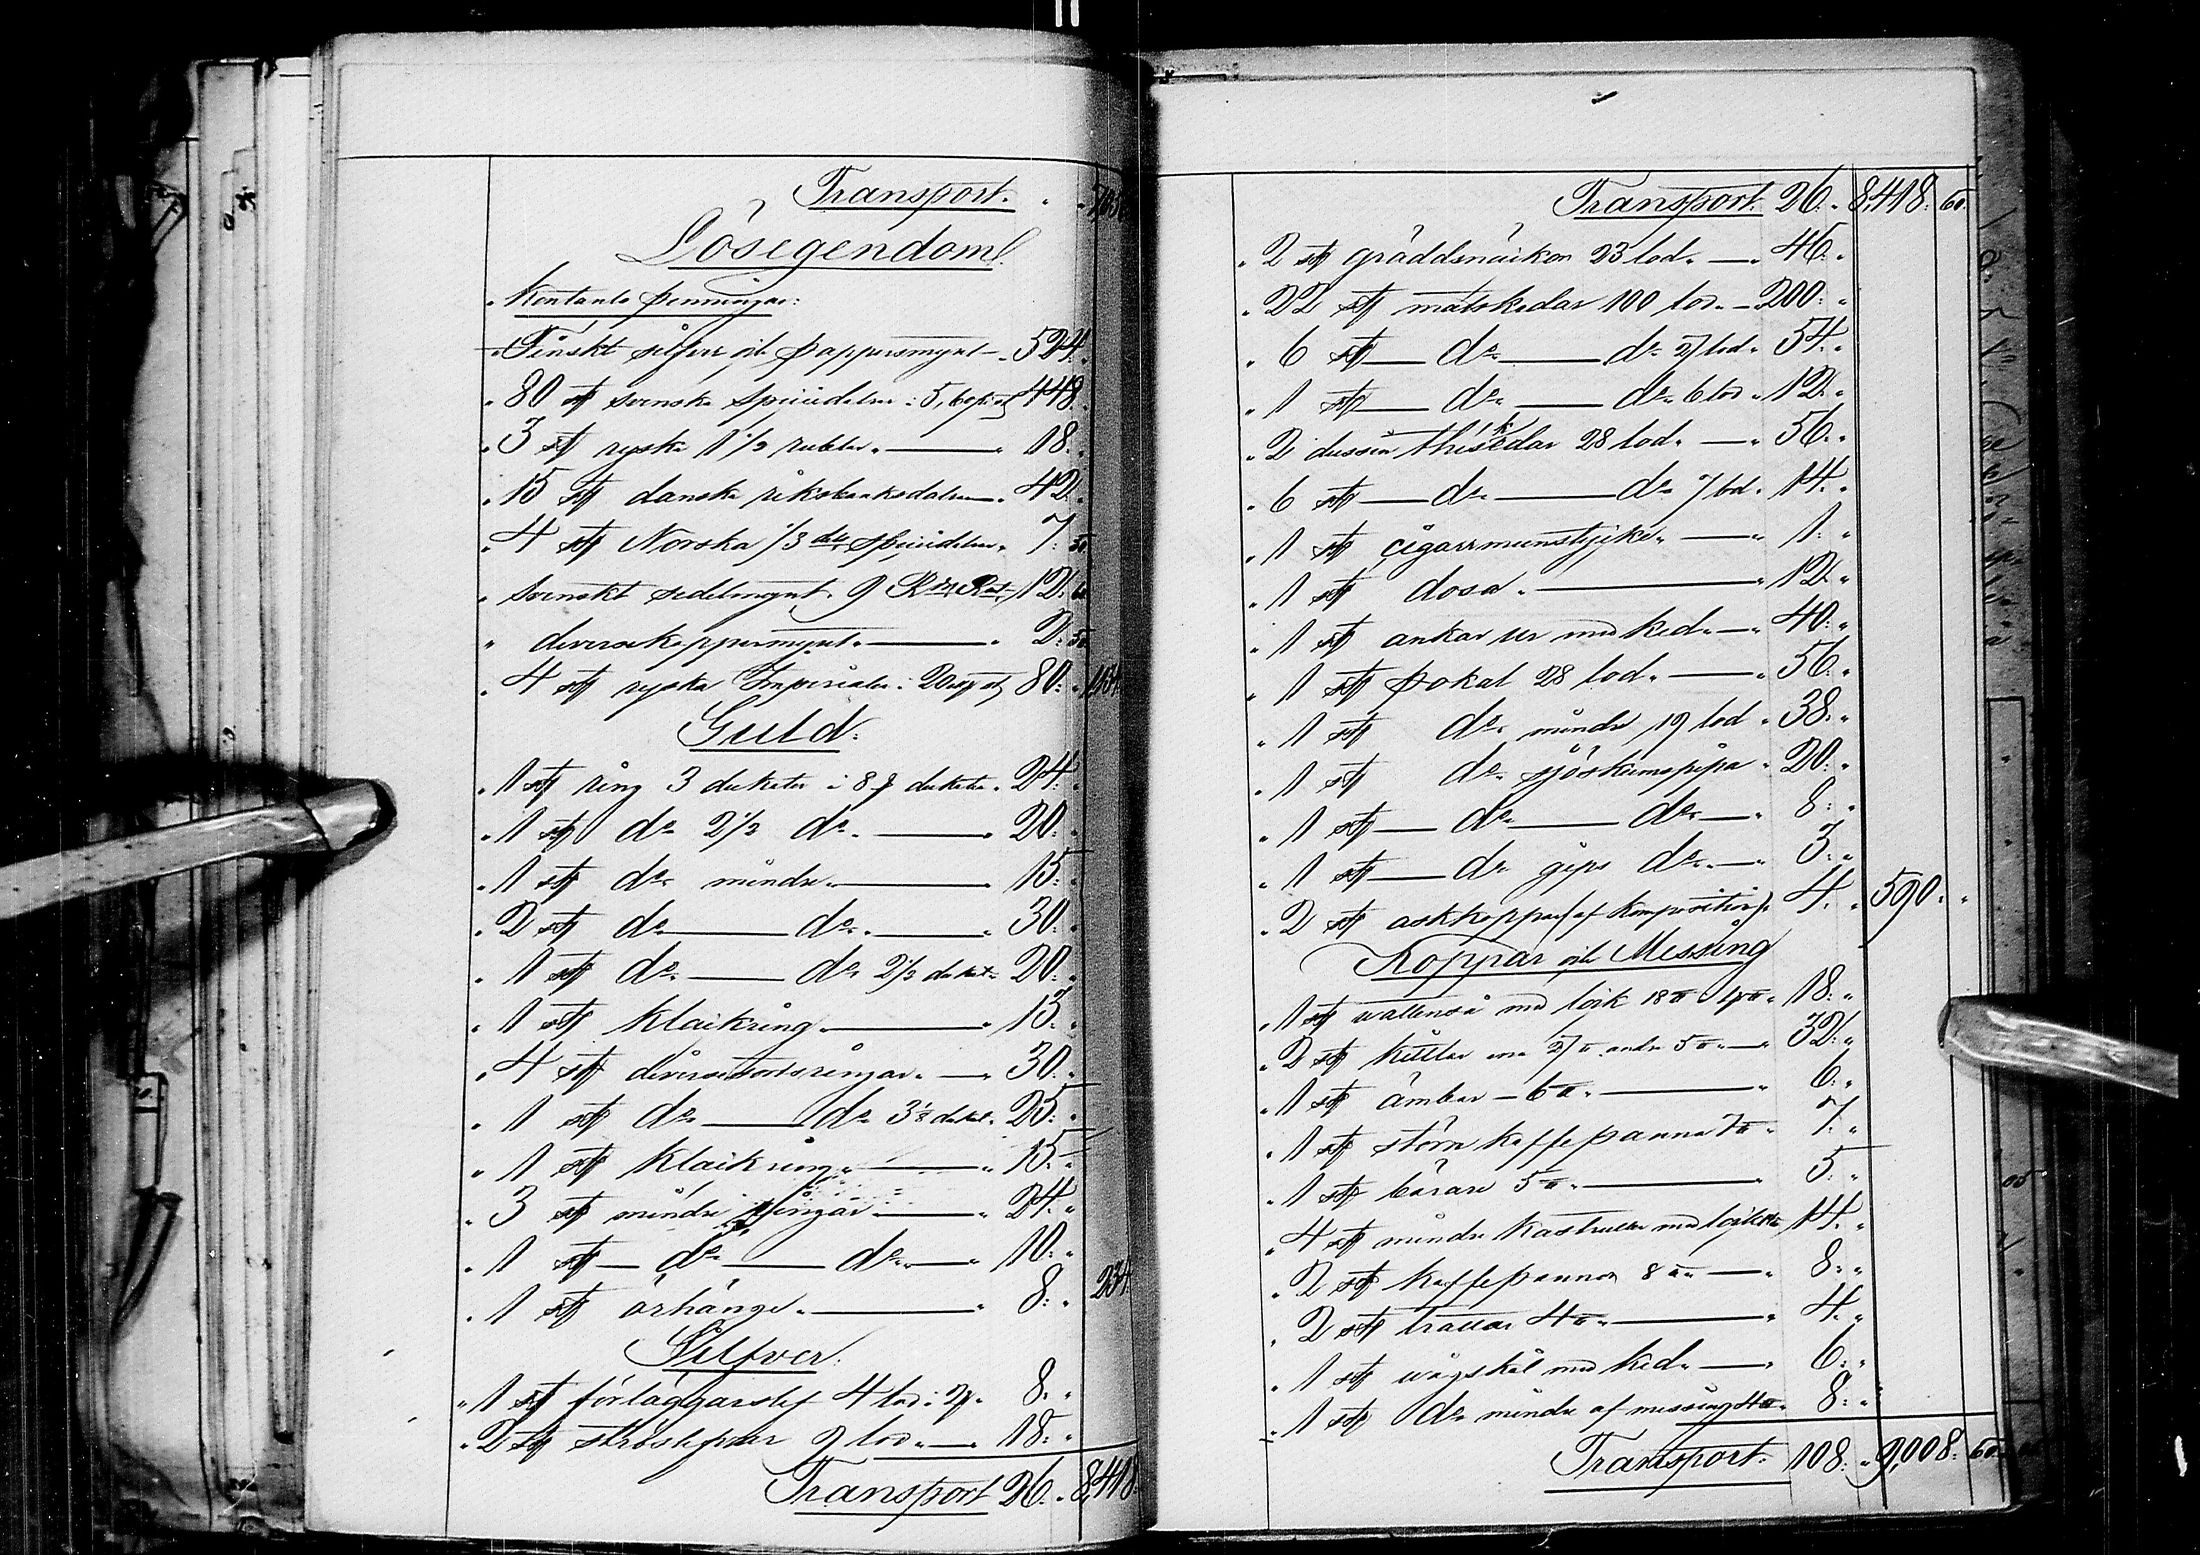 Transport. "
Lösegendom.
Kontanta penningar:
Finskt silfver och pappersmynt — 524: "
" 80 st svenska Speciedaler: 5,60 p. st 448: "
" 3 st ryska 1 1/2 rubler. — " 18: "
" 15 st danska riksbanksdaler — " 42: "
" 4 st Norska 1/3 dels Speciedaler " 7: 50
" Svenskt sedelmynt 9 Rdr Rmt 12: 60
" diverse kopparmynt. — " 2: 50
" 4 st ryska Imperialer: 20 p. st 80: "
Guld.
" 1 st ring 3 dukater i 8 dukaten. 24: "
" 1 st do 2 1/2 do. — " 20: "
" 1 st do mindre. — " 15: "
" 2 st do — do. — " 30: "
" 1 st do. — do 2 1/2 dukat. 20: "
" 1 st klackring. — " 13: "
" 4 st diversesortsringar. — " 30: "
" 1 st do — do 3 1/8 dukat. " 25: "
" 1 st klackring. — " 15: "
" 3 st mindre ringar — " 24: "
" 1 st — do — do. — " 10: "
" 1 st örhänge. — " 8: " 234
Silfver.
" 1 st förläggarslef 4 lod: 2 " 8: "
" 2 st ströslefvar 9 lod. — " 18: "
Transport 26: " 8,418:
Transport. 26: " 8,418: 60.
" 2 st gräddsnäckor 23 lod. — " 46: "
" 22 st matskedar 100 lod. — 200: "
" 6 st — do — do 27 lod. 54: "
" 1 st — do. — do. 6 lod. " 12: "
" 2 dussin theskedar 28 lod. — " 56: "
" 6 st — do — do 7 lod. " 14: "
" 1 st cigarrmunstycke. — " 1: "
" 1 st dosa. — " 12: "
" 1 st ankar ur med ked. — " 40: "
" 1 st pokal 28 lod. — " 56: "
" 1 st do. mindre 19 lod " 38: "
" 1 st do. sjöskumspipa " 20: "
" 1 st — do — do. — " 8: "
" 1 st — do gips do. — " 3: "
" 2 st askkoppar (af komposition). 4: " 590: "
Koppar och Messing
" 1 st vattenså med lock 18 ℔ " 18: "
" 2 st kittlar ena 27 ℔ andra 5 ℔ — " 32: "
" 1 st ämbar — 6 ℔. — " 6: "
" 1 st större kaffepanna 7 ℔ " 7: "
" 1 st bärare 5 ℔. — " 5: "
" 4 st mindre kastruller med lock 14: "
" 2 st kaffepannor 8 ℔. — " 8: "
" 2 st trattar 4 ℔. — " 4: "
" 1 st vågskål med ked. — " 6: "
" 1 st do mindre af messing 8: "
Transport. 108: " 9,008: 60